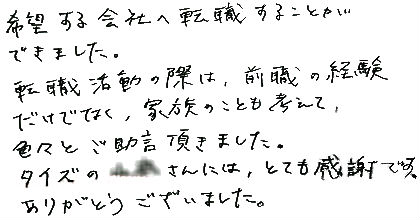 希望する会社へ転職することが
できました。
転職活動の際は、前職の経験
だけでなく、家族のことも考えて、
色々とご助言頂きました。
タイズの さんには、とても感謝です。
ありがとうございました。